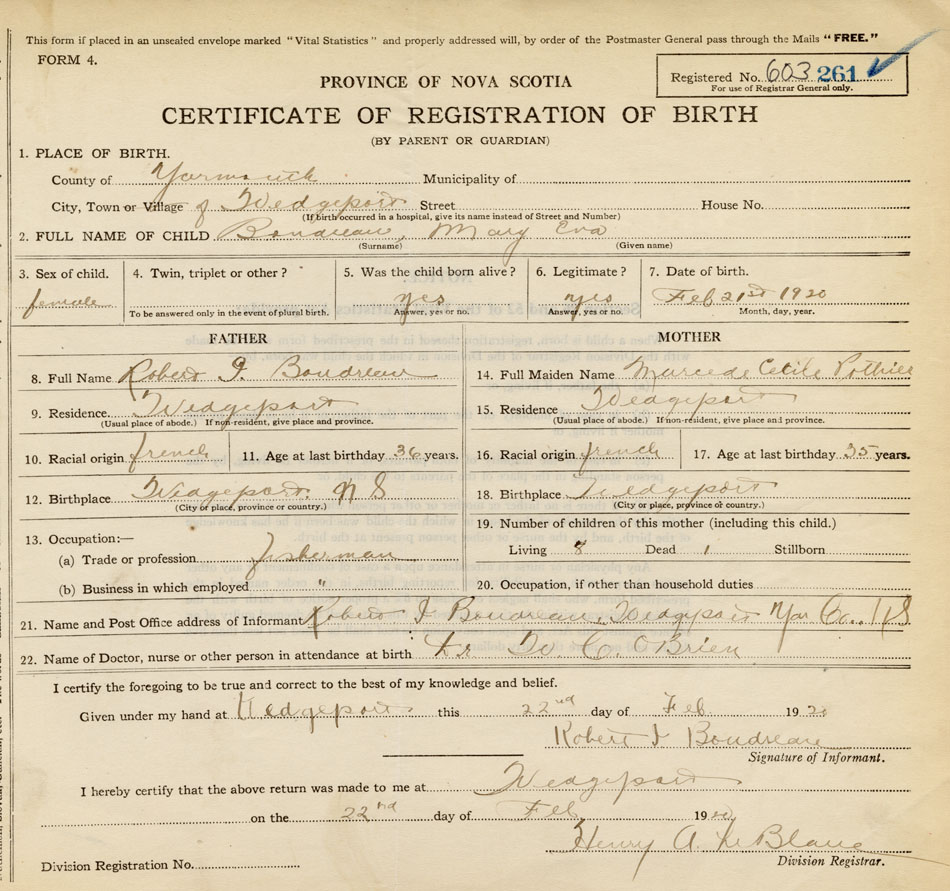 This form if placed in an unsealed envelope marked "Vital Statistics" and properly addressed will, by order of the Postmaster General pass through the Mails "FREE."
FORM 4.
Registered No. 603 261
For use of Registrar General only.
PROVINCE OF NOVA SCOTIA
CERTIFICATE OF REGISTRATION OF BIRTH
(BY PARENT OR GUARDIAN)
1. PLACE OF BIRTH.
County of Yarmouth Municipality of
City, Town or Village of Wedgeport Street House No.
(If birth occurred in a hospital, give its name instead of Street and Number)
2. FULL NAME OF CHILD Boudreau, Mary Eva
(Surname) (Given name)
3. Sex of child. 4. Twin, triplet or other? 5. Was the child born alive? 6. Legitimate? 7. Date of birth.
female yes yes Feb 21st 1920
To be answered only in the event of plural birth. Answer, yes or no. Answer, yes or no. Month, day, year.
FATHER MOTHER
8. Full Name Robert J. Boudreau 14. Full Maiden Name Cecile Pothier
9. Residence. Wedgeport 15. Residence Wedgeport
(Usual place of abode.) If non-resident, give place and province. (Usual place of abode.) If non-resident, give place and province.
10. Racial origin french 11. Age at last birthday 36 years. 16. Racial origin french 17. Age at last birthday 35 years.
12. Birthplace Wedgeport. N S 18. Birthplace Wedgeport
(City or place, province or country.) (City or place, province or country.)
13. Occupation:— 19. Number of children of this mother (including this child.)
(a) Trade or profession fisherman Living 8 Dead 1 Stillborn
(b) Business in which employed " 20. Occupation, if other than household duties
21. Name and Post Office address of Informant Robert J Boudreau, Wedgeport Yar Co.. N S
22. Name of Doctor, nurse or other person in attendance at birth Dr C. O'Brien
I certify the foregoing to be true and correct to the best of my knowledge and belief.
Given under my hand at Wedgeport this 22nd day of Feb 1920
Robert J Boudreau
Signature of Informant.
I hereby certify that the above return was made to me at Wedgeport
on the 22nd day of Feb 1920
Henry A. LeBlanc
Division Registrar.
Division Registration No.